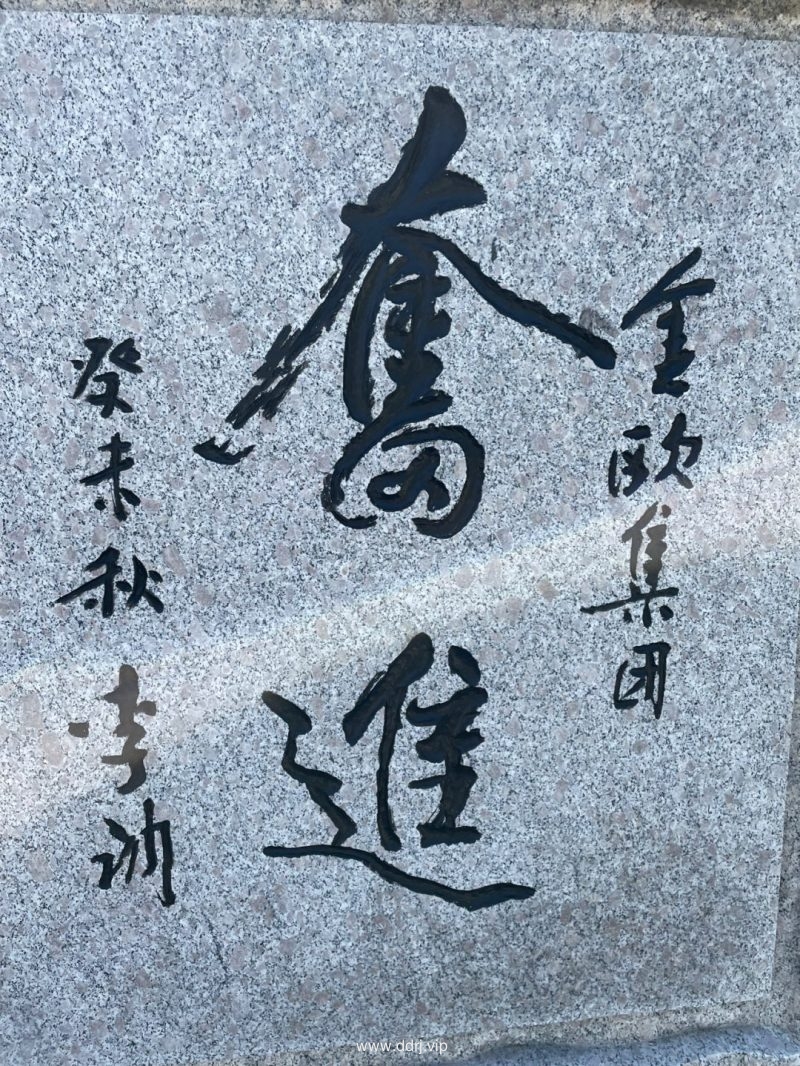 金欧集团
奮進
癸未秋 李
www.ddrj.vip